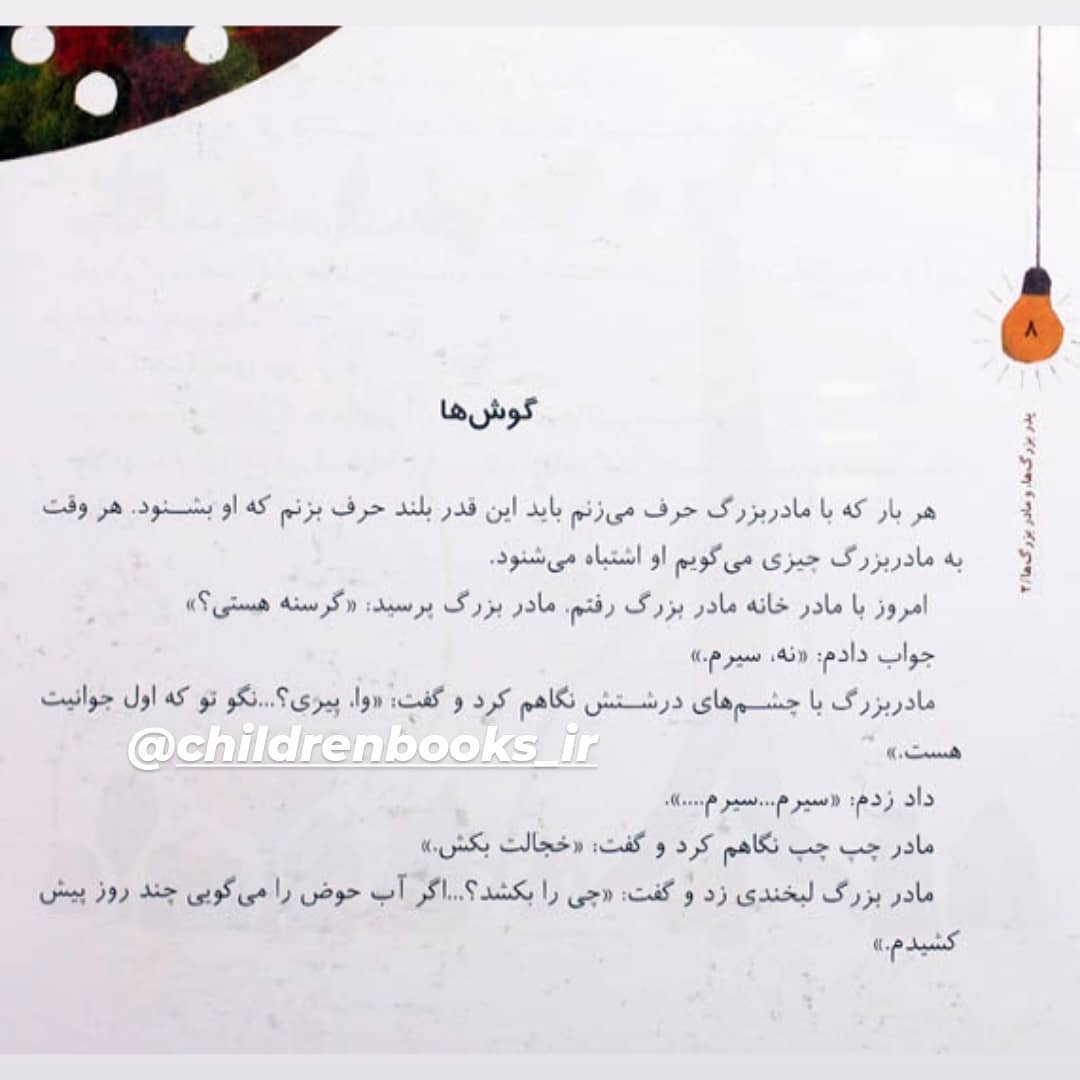 ۸
پدر بزرگ‌ها، و مادر بزرگ‌ها/۲
گوش‌ها
هر بار که با مادربزرگ حرف می‌زنم باید این قدر بلند حرف بزنم که او بشنود. هر وقت
به مادربزرگ چیزی می‌گویم او اشتباه می‌شنود.
امروز با مادر خانه مادر بزرگ رفتم. مادر بزرگ پرسید: «گرسنه هستی؟»
جواب دادم: «نه، سیرم.»
مادربزرگ با چشم‌های درشتش نگاهم کرد و گفت: «وا، پیری؟...نگو تو که اول جوانیت
هست.»
@childrenbooks_ir
داد زدم: «سیرم...سیرم....».
مادر چپ چپ نگاهم کرد و گفت: «خجالت بکش.»
مادر بزرگ لبخندی زد و گفت: «چی را بکشد؟...اگر آب حوض را می‌گویی چند روز پیش
کشیدم.»